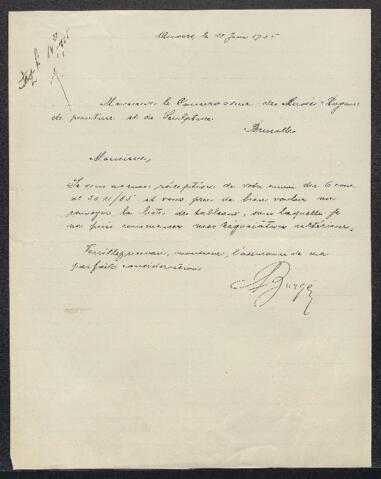 le 10 Juin 1905
Monsieur le Conservateur des Musées Royaux
de peinture et de Sculpture
Bruxelles
Monsieur,
réception de votre du 6 cour
n° et vous prie de bien vouloir me
envoyer la liste des tableaux, sans laquelle je
ne puis commencer mes négociations ultérieures.
Veuillez recevoir, monsieur, l'assurance de ma
parfaite considération